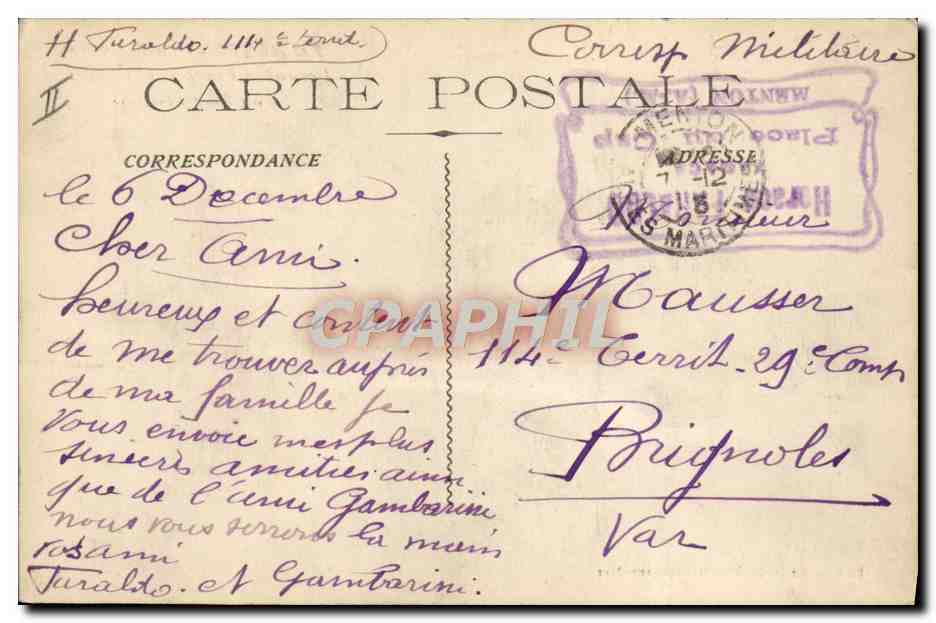 H Turaldo. 114e territ.
Corresp Militaire
II
CARTE POSTALE
CORRESPONDANCE
ADRESSE
MENTON (A.M.)
Place du Cap
MENTON
7 -12
15
ALPES MARITIMES
le 6 Decembre
Cher Ami.
heureux et content
de me trouver auprès
de ma famille je
vous envoie mes plus
sincères amitiés ainsi
que de l'ami Gambarini
nous vous serrons la main
vos ami
Turaldo. et Gambarini.
Monsieur
Mausser
114e Territ. 29e Comp
Brignoles
Var
CPAPHIL